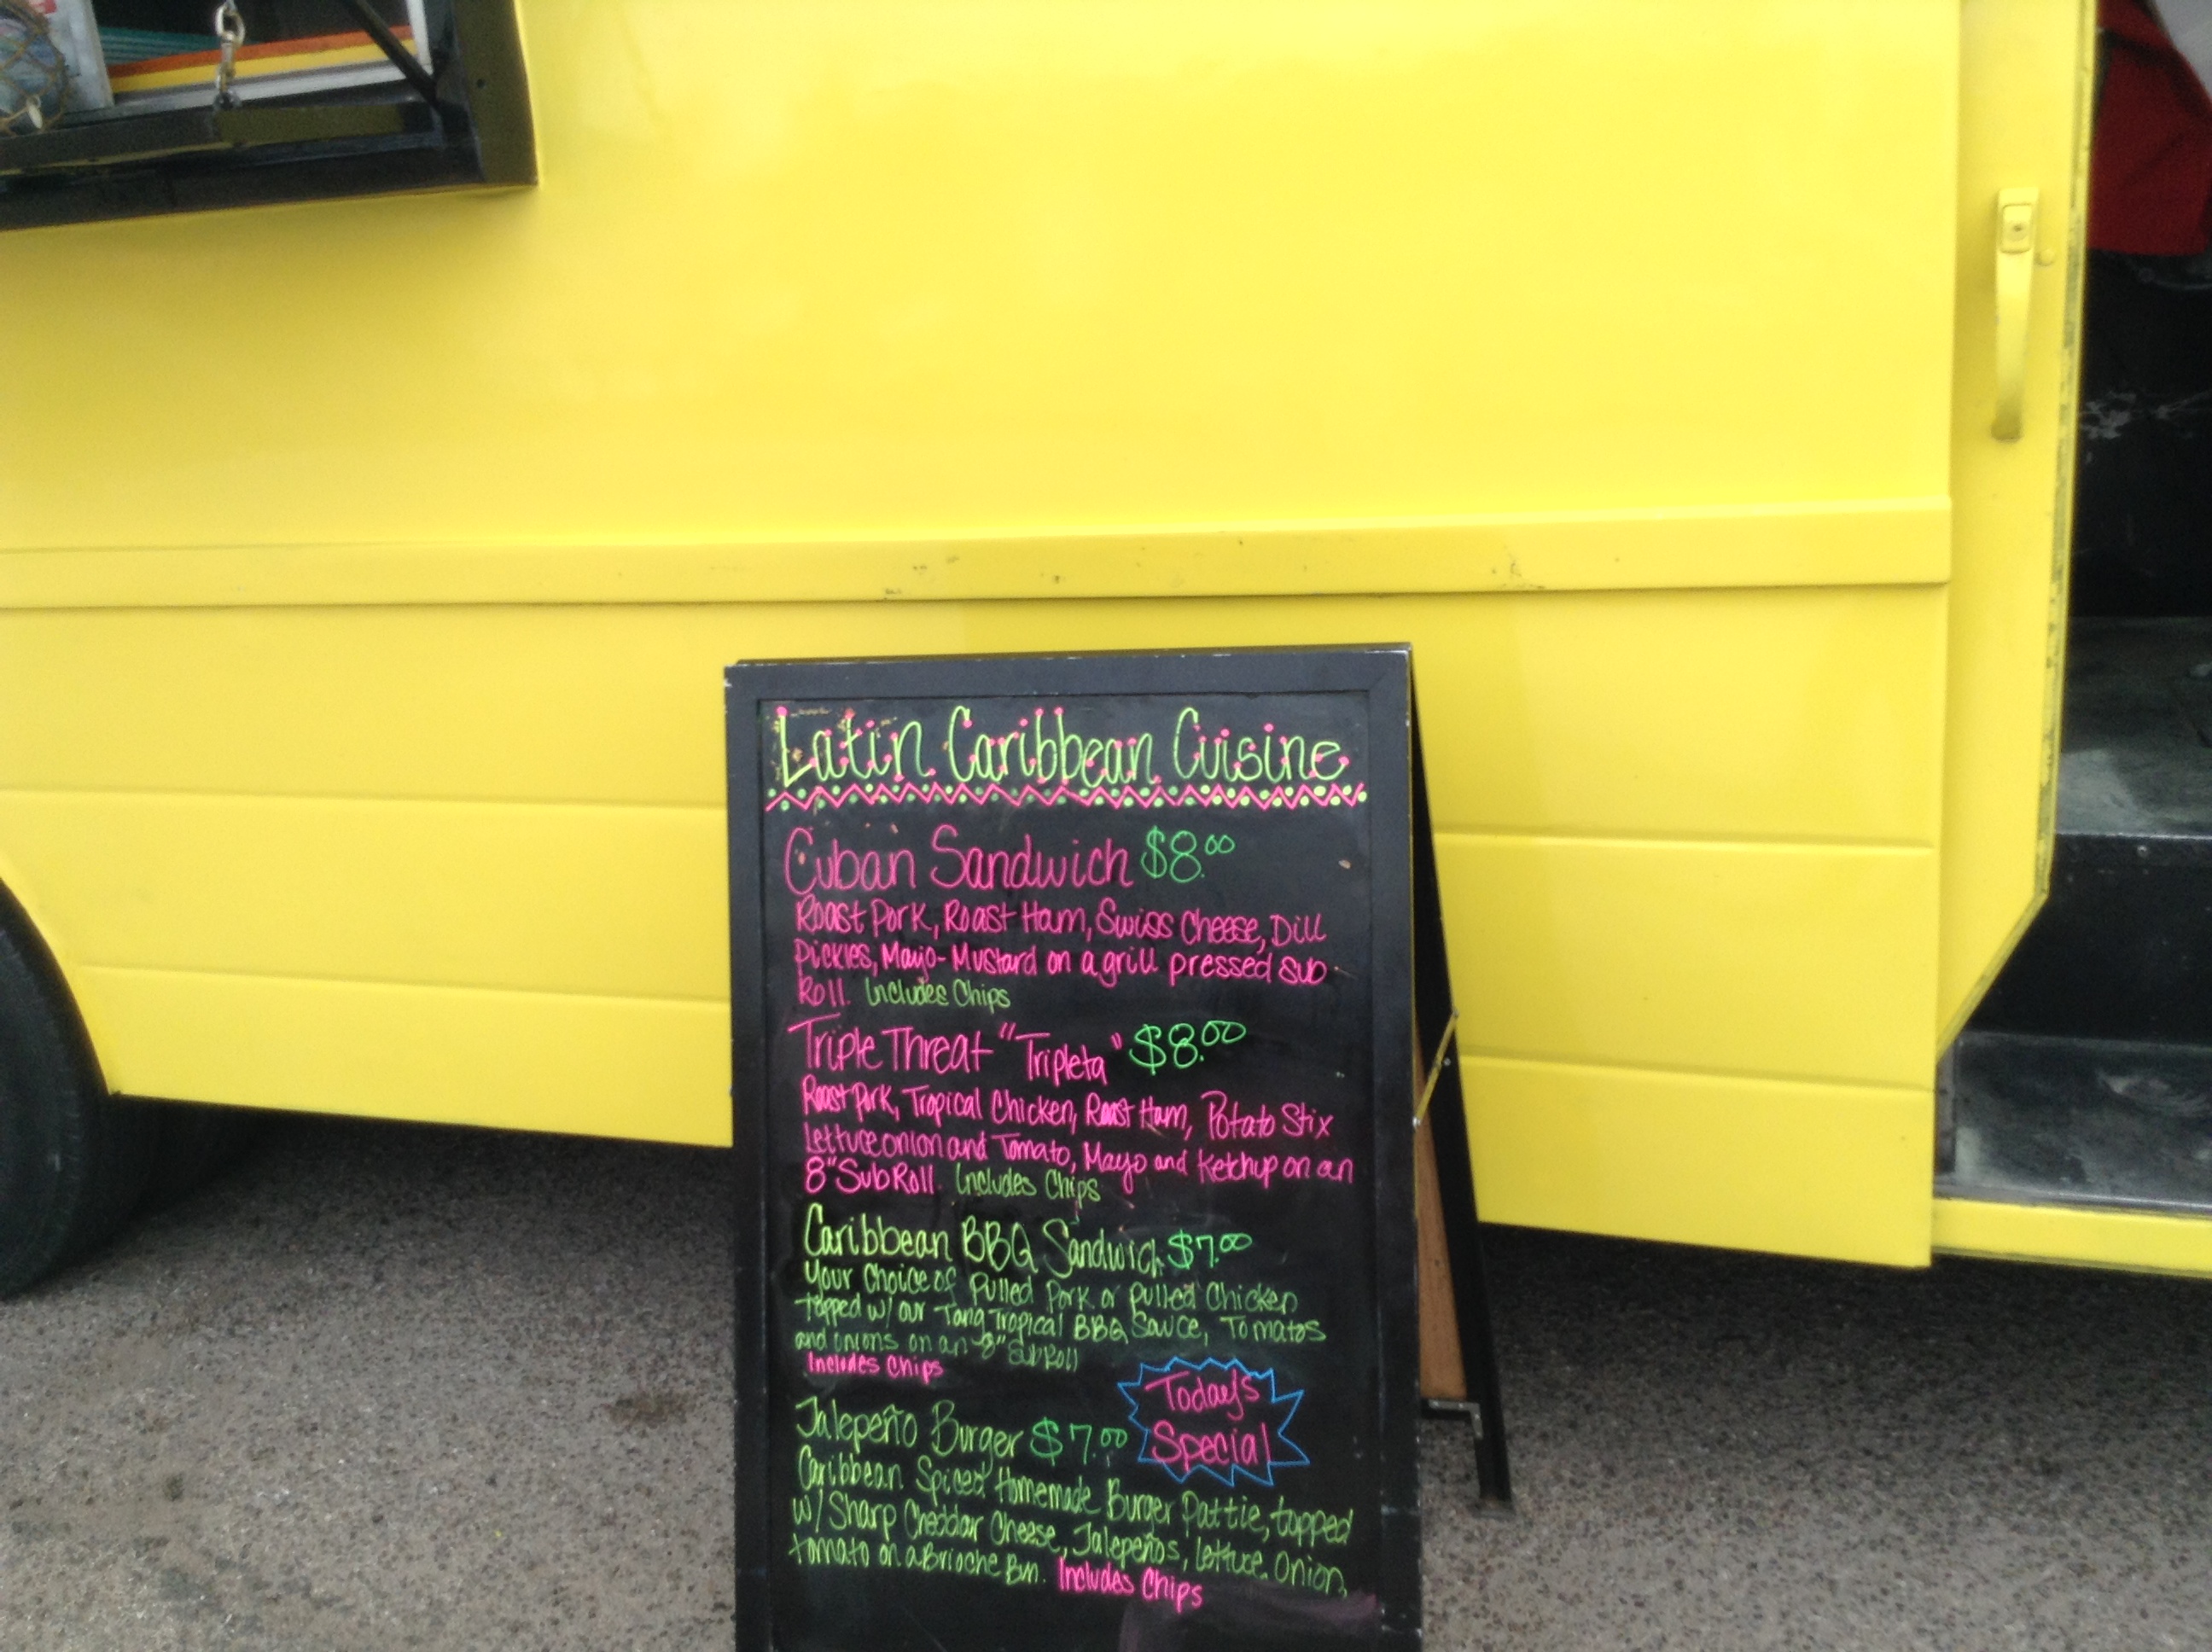 Latin Caribbean Cuisine
Cuban Sandwich $8.00
Roast Pork, Roast Ham, Swiss Cheese, Dill
Pickles, Mayo-Mustard on a grill pressed sub
Roll. Includes Chips
Triple Threat "Tripleta" $8.00
Roast Pork, Tropical Chicken, Roast Ham, Potato Stix
Lettuce onion and Tomato, Mayo and Ketchup on an
8" Sub Roll. Includes Chips
Caribbean BBQ Sandwich $7.00
Your Choice of Pulled Pork or Pulled Chicken
topped w/ our Tang Tropical BBQ Sauce, Tomatos
and onions on an 8" Sub Roll
Includes Chips
Today's
Special
Jalepeño Burger $7.00
Caribbean Spiced Homemade Burger Pattie, topped
w/ Sharp Cheddar Cheese, Jalepeños, Lettuce, Onion,
tomato on a Brioche Bun. Includes Chips